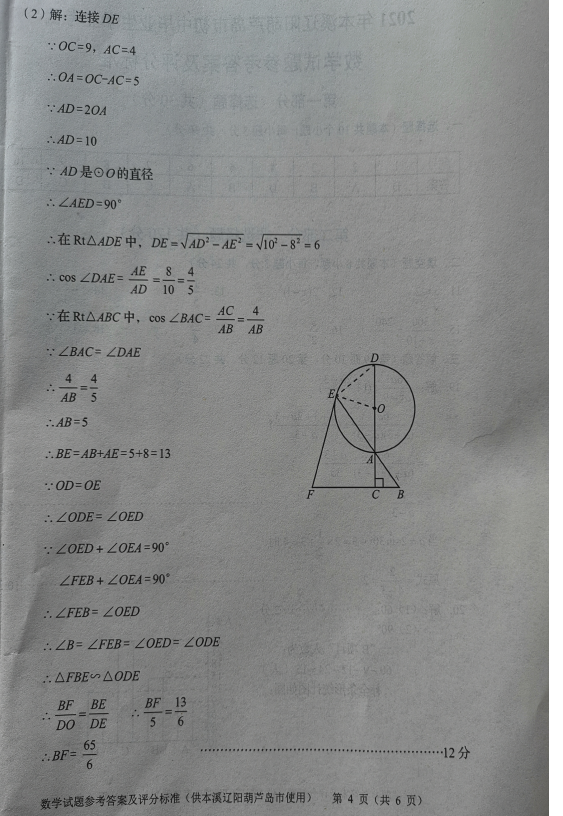 (2)解：连接DE
∵OC=9，AC=4
∴OA=OC-AC=5
∵AD=2OA
∴AD=10
∵ AD是⊙O的直径
∴∠AED=90°
∴在Rt△ADE中，DE=√(AD²-AE²)=√(10²-8²)=6
∴cos ∠DAE=AE/AD=8/10=4/5
∵在Rt△ABC中，cos ∠BAC=AC/AB=4/AB
∵ ∠BAC= ∠DAE
∴4/AB=4/5
∴AB=5
∴BE=AB+AE=5+8=13
∵OD=OE
∴∠ODE= ∠OED
∵∠OED + ∠OEA=90°
∠FEB + ∠OEA=90°
∴∠FEB= ∠OED
∴∠B= ∠FEB= ∠OED= ∠ODE
∴△FBE∽△ODE
∴BF/DO=BE/DE ∴BF/5=13/6
∴BF=65/6 ……………………………………12分
D
E
O
A
F C B
数学试题参考答案及评分标准（供本溪辽阳葫芦岛市使用） 第 4 页（共 6 页）